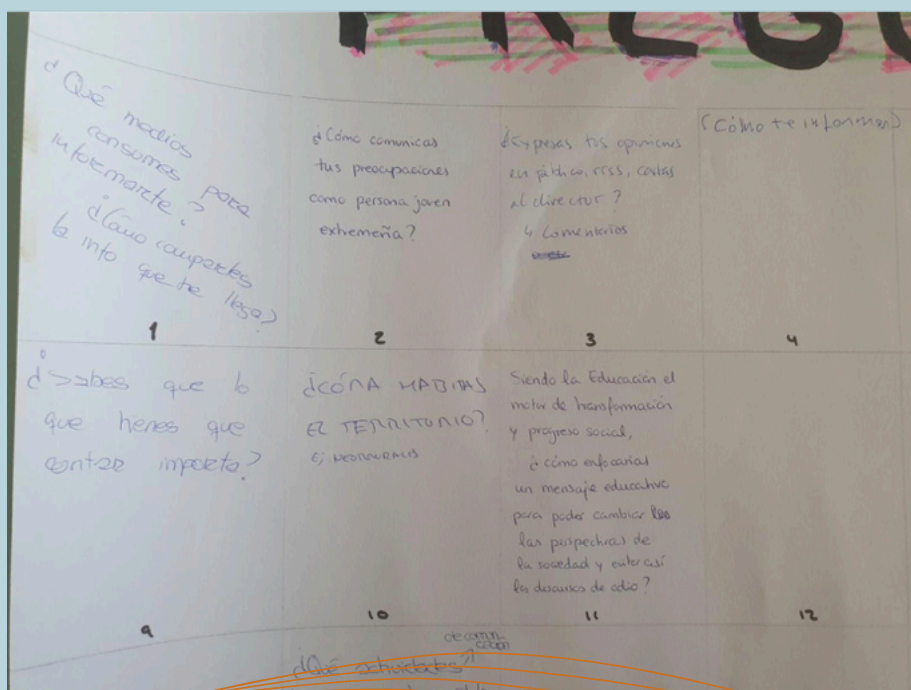 PREGU
¿Qué medios
consumes para
informarte?
¿Cómo compartes
la info que te llega?
1
¿Cómo comunicas
tus preocupaciones
como persona joven
extremeña?
2
¿Expresas tus opiniones
en público, rrss, cartas
al director?
4 comentarios
3
¿Cómo te informas?
4
¿Sabes que lo
que tienes que
contar importa?
9
HABITAS
EL TERRITORIO?
Ej NEORRURALES
10
Siendo la Educación el
motor de transformación
y progreso social,
¿cómo enfocarías
un mensaje educativo
para poder cambiar
las perspectivas de
la sociedad y evitar así
los discursos de odio?
11
12
¿Qué actividades
de comuni-
cación